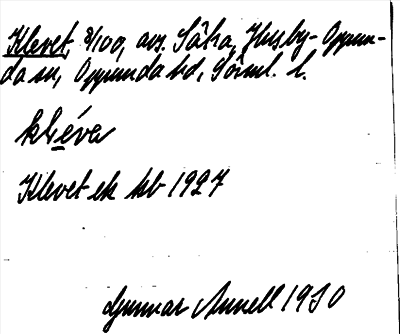 Klevet, 2/100, avs. Såka, Husby-Oppun-
da sn, Oppunda hd, Söml. l.
kléva
Klevet ek kb 1927
Gunnar Annell 1930